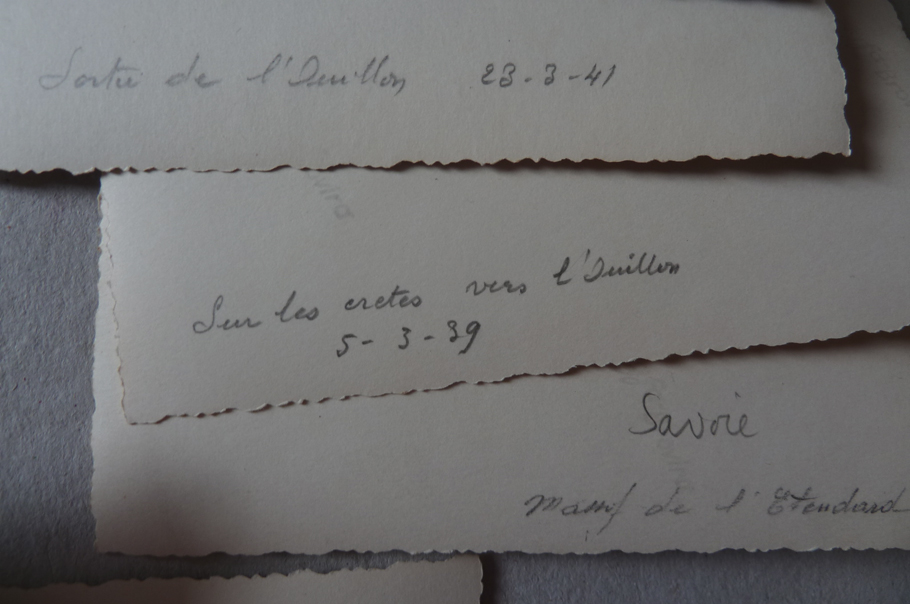 Sortie de l'Ouillon 23-3-41
Sur les cretes vers l'Ouillon
5-3-39
Savoie
Massif de l'Etendard